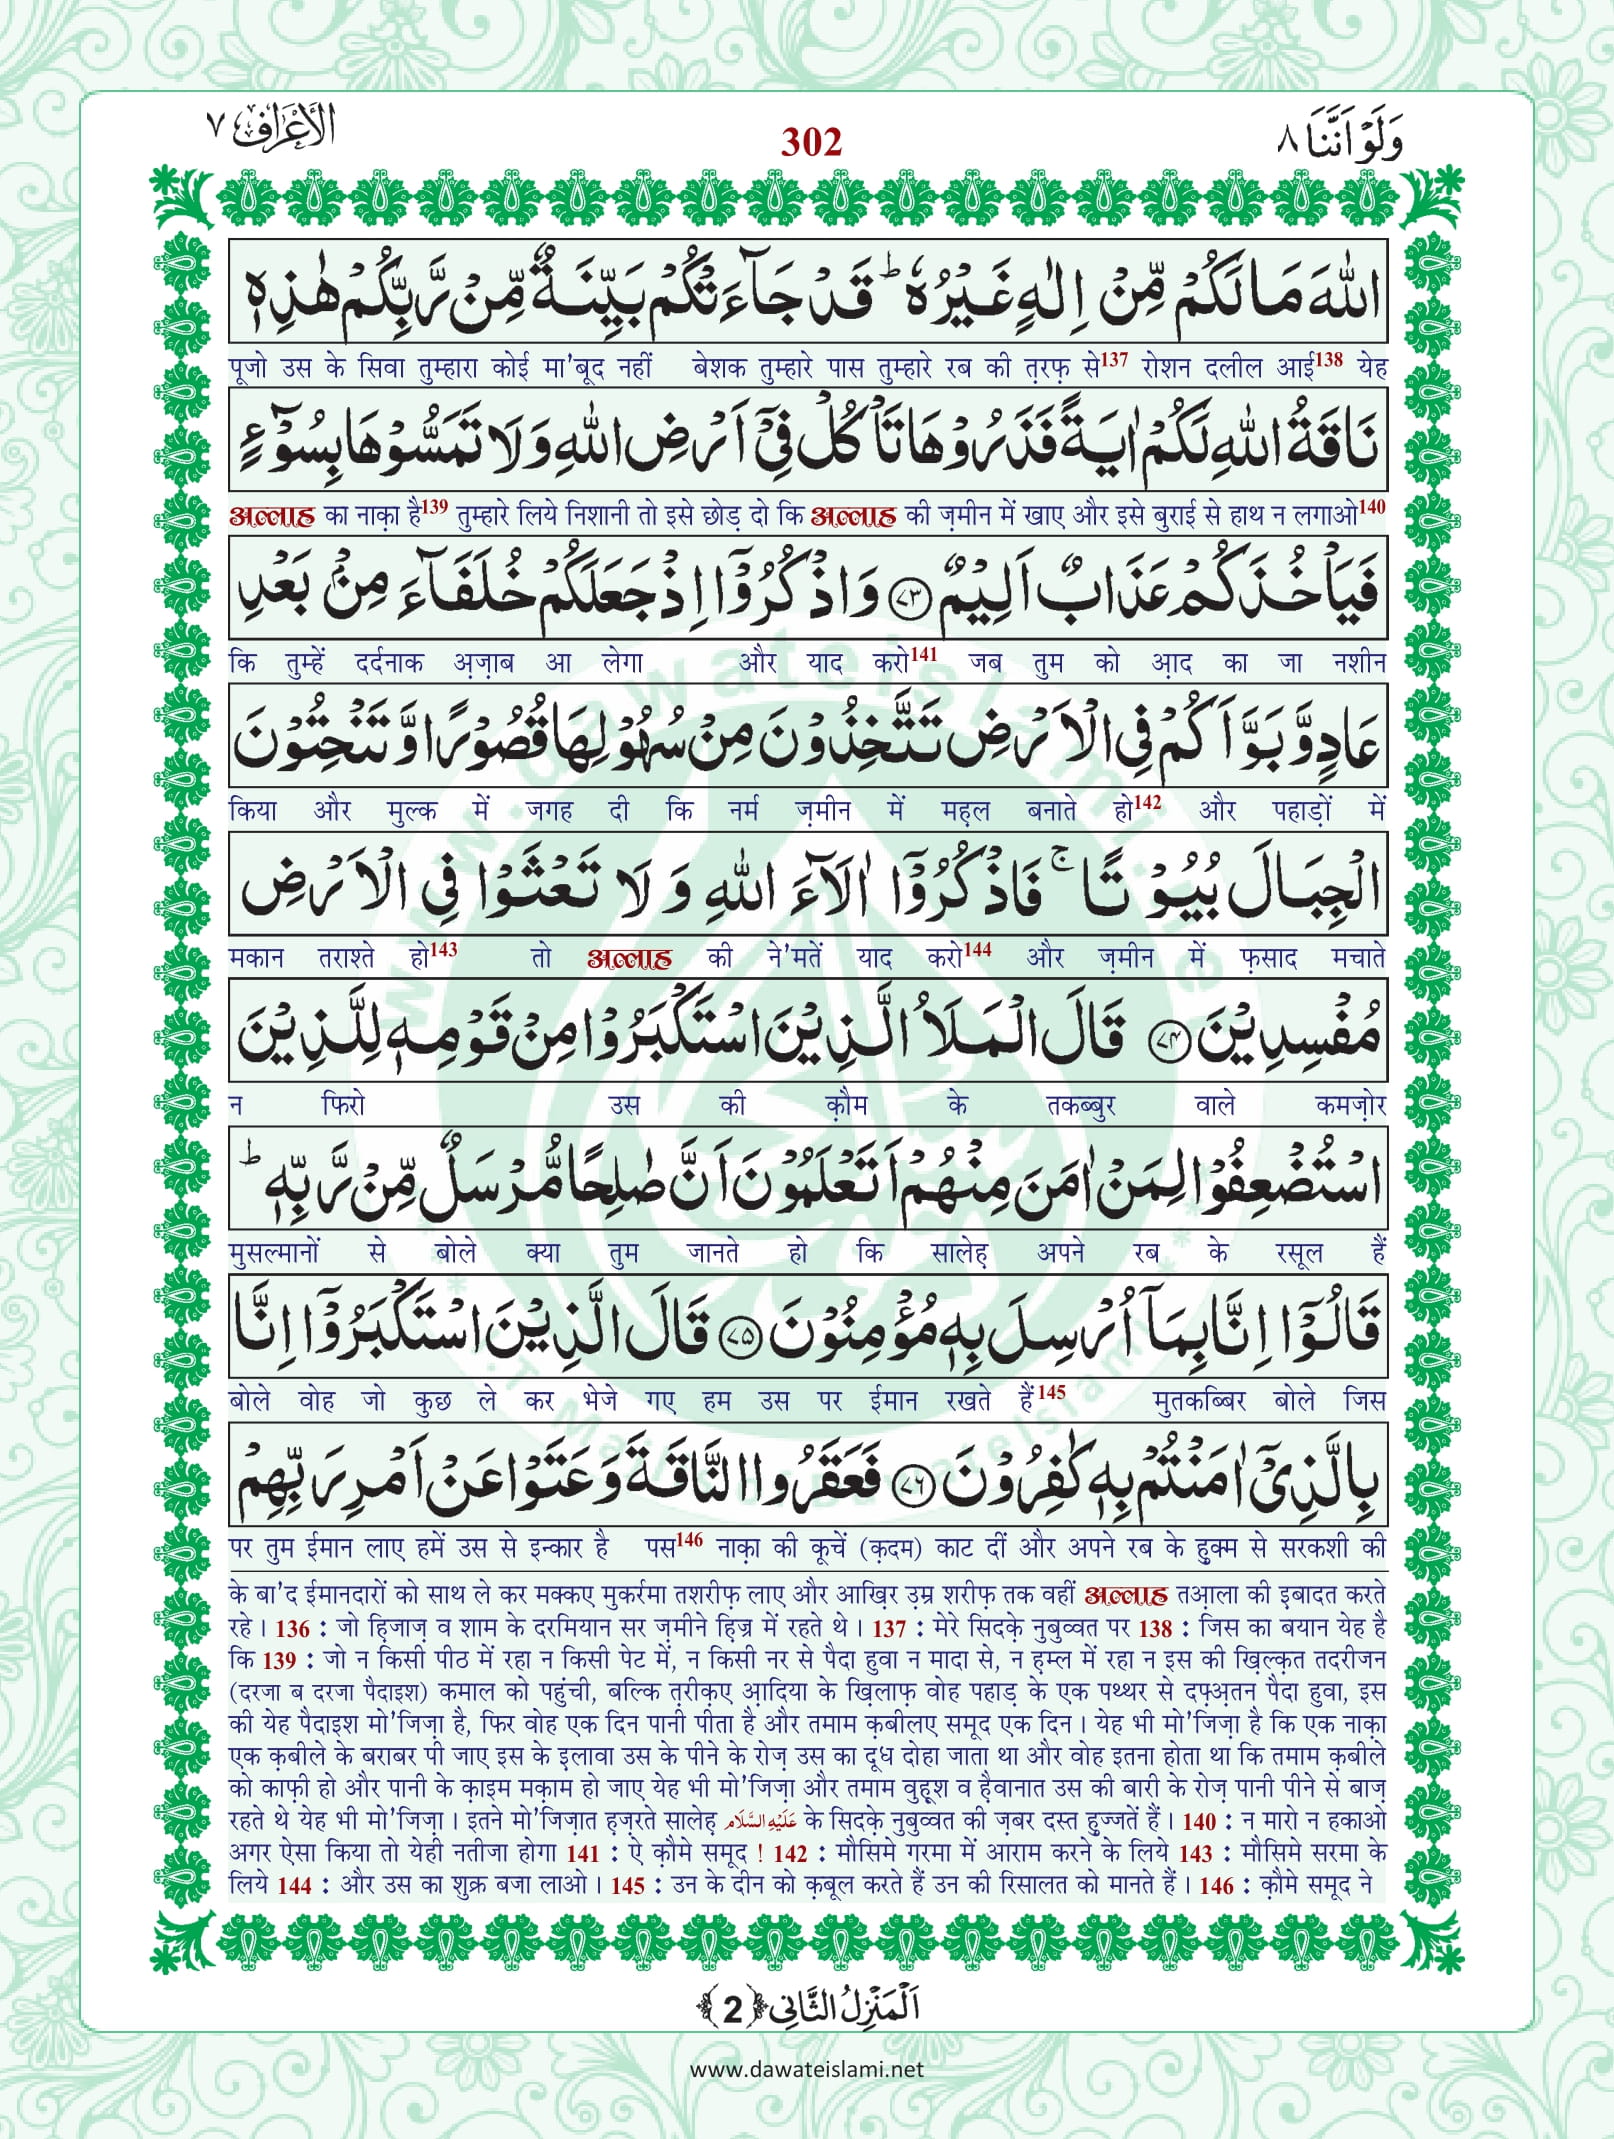 الأعراف ٧
302
وَلَوْ اَنَّنَا ٨
اللّٰهَ مَا لَكُمْ مِّنْ اِلٰهٍ غَیْرُهٗ ؕ قَدْ جَآءَتْكُمْ بَیِّنَةٌ مِّنْ رَّبِّكُمْ هٰذِهٖ
पूजो उस के सिवा तुम्हारा कोई मा'बूद नहीं बेशक तुम्हारे पास तुम्हारे रब की त़रफ़ से137 रोशन दलील आई138 येह
نَاقَةُ اللّٰهِ لَكُمْ اٰیَةً فَذَرُوْهَا تَاْكُلْ فِیْۤ اَرْضِ اللّٰهِ وَ لَا تَمَسُّوْهَا بِسُوْٓءٍ
अल्लाह का नाक़ा है139 तुम्हारे लिये निशानी तो इसे छोड़ दो कि अल्लाह की ज़मीन में खाए और इसे बुराई से हाथ न लगाओ140
فَیَاْخُذَكُمْ عَذَابٌ اَلِیْمٌ ﴿۷۳﴾ وَ اذْكُرُوْۤا اِذْ جَعَلَكُمْ خُلَفَآءَ مِنْۢ بَعْدِ
कि तुम्हें दर्दनाक अ़ज़ाब आ लेगा और याद करो141 जब तुम को आ़द का जा नशीन
عَادٍ وَّ بَوَّاَكُمْ فِی الْاَرْضِ تَتَّخِذُوْنَ مِنْ سُهُوْلِهَا قُصُوْرًا وَّ تَنْحِتُوْنَ
किया और मुल्क में जगह दी कि नर्म ज़मीन में मह़ल बनाते हो142 और पहाड़ों में
الْجِبَالَ بُیُوْتًا ۚ فَاذْكُرُوْۤا اٰلَآءَ اللّٰهِ وَ لَا تَعْثَوْا فِی الْاَرْضِ
मकान तराश्ते हो143 तो अल्लाह की ने'मतें याद करो144 और ज़मीन में फ़साद मचाते
مُفْسِدِیْنَ ﴿۷۴﴾ قَالَ الْمَلَاُ الَّذِیْنَ اسْتَكْبَرُوْا مِنْ قَوْمِهٖ لِلَّذِیْنَ
न फिरो उस की क़ौम के तकब्बुर वाले कमज़ोर
اسْتُضْعِفُوْا لِمَنْ اٰمَنَ مِنْهُمْ اَتَعْلَمُوْنَ اَنَّ صٰلِحًا مُّرْسَلٌ مِّنْ رَّبِّهٖ ؕ
मुसल्मानों से बोले क्या तुम जानते हो कि सालेह़ अपने रब के रसूल हैं
قَالُوْۤا اِنَّا بِمَاۤ اُرْسِلَ بِهٖ مُؤْمِنُوْنَ ﴿۷۵﴾ قَالَ الَّذِیْنَ اسْتَكْبَرُوْۤا اِنَّا
बोले वोह जो कुछ ले कर भेजे गए हम उस पर ईमान रखते हैं145 मुतकब्बिर बोले जिस
بِالَّذِیْۤ اٰمَنْتُمْ بِهٖ كٰفِرُوْنَ ﴿۷۶﴾ فَعَقَرُوا النَّاقَةَ وَ عَتَوْا عَنْ اَمْرِ رَبِّهِمْ
पर तुम ईमान लाए हमें उस से इन्कार है पस146 नाक़ा की कूचें (क़दम) काट दीं और अपने रब के हु़क्म से सरकशी की
के बा'द ईमानदारों को साथ ले कर मक्कए मुकर्रमा तशरीफ़ लाए और आख़िर उ़म्र शरीफ़ तक वहीं अल्लाह तआ़ला की इ़बादत करते
रहे। 136 : जो ह़िजाज़ व शाम के दरमियान सर ज़मीने ह़िज्र में रहते थे। 137 : मेरे सिदक़े नुबुव्वत पर 138 : जिस का बयान येह है
कि 139 : जो न किसी पीठ में रहा न किसी पेट में, न किसी नर से पैदा हुवा न मादा से, न ह़म्ल में रहा न इस की ख़िल्क़त तदरीजन
(दरजा ब दरजा पैदाइश) कमाल को पहुंची, बल्कि त़रीक़ए आ़दिया के ख़िलाफ़ वोह पहाड़ के एक पथ्थर से दफ़्अ़तन पैदा हुवा, इस
की येह पैदाइश मो'जिज़ा है, फिर वोह एक दिन पानी पीता है और तमाम क़बीलए समूद एक दिन। येह भी मो'जिज़ा है कि एक नाक़ा
एक क़बीले के बराबर पी जाए इस के इ़लावा उस के पीने के रोज़ उस का दूध दोहा जाता था और वोह इतना होता था कि तमाम क़बीले
को काफ़ी हो और पानी के क़ाइम मक़ाम हो जाए येह भी मो'जिज़ा और तमाम वुह़ूश व ह़ैवानात उस की बारी के रोज़ पानी पीने से बाज़
रहते थे येह भी मो'जिज़ा। इतने मो'जिज़ात ह़ज़रते सालेह़ عَلَيْهِ السَّلَام के सिदक़े नुबुव्वत की ज़बर दस्त ह़ुज्जतें हैं। 140 : न मारो न हकाओ
अगर ऐसा किया तो येही नतीजा होगा 141 : ऐ क़ौमे समूद ! 142 : मौसिमे गरमा में आराम करने के लिये 143 : मौसिमे सरमा के
लिये 144 : और उस का शुक्र बजा लाओ। 145 : उन के दीन को क़बूल करते हैं उन की रिसालत को मानते हैं। 146 : क़ौमे समूद ने
اَلْمَنْزِلُ الثَّانِی ﴿2﴾
www.dawateislami.net